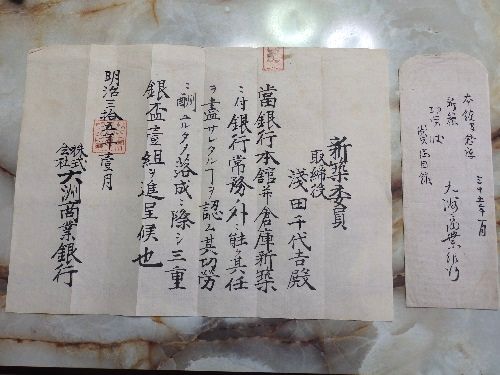 新築委員
取締役
淺田千代吉殿
當銀行本舘并倉庫新築
ニ付銀行常務ノ外ニ能ク其任
ヲ盡サレタルヿヲ認ム其功勞
ニ酬ユルタメ落成ニ際シ三重
銀盃壹組ヲ進呈候也
明治三拾五年壹月
株式會社大洲商業銀行
本舘并倉庫
新築
賞与目録
三十五年一月
大洲商業銀行